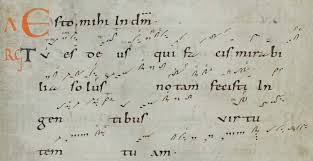 A Esto mihi In dm
RG Tu es de us qui fa cis mirabi
lia solus notam fecisti In
gen tibus virtu
tem tu am